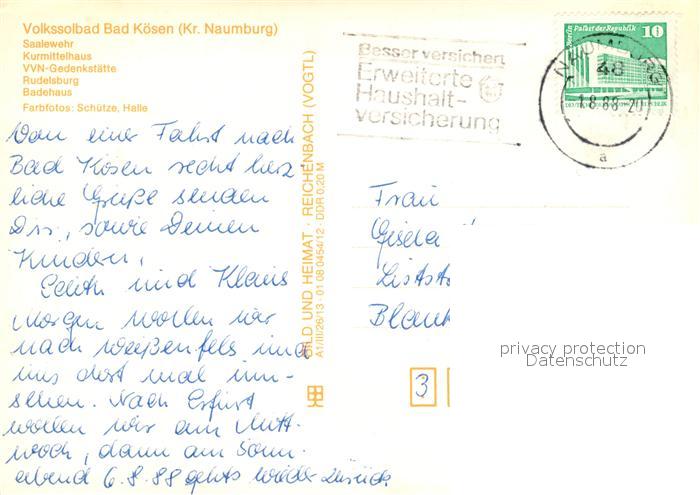 Volkssolbad Bad Kösen (Kr. Naumburg)
Saalewehr
Kurmittelhaus
VVN-Gedenkstätte
Rudelsburg
Badehaus
Farbfotos: Schütze, Halle
Von einer Fahrt nach
Bad Kösen recht herz-
liche Grüße senden
Dir, sowie Deinen
Kindern,
Edith und Klaus
Morgen wollen wir
nach Weißenfels und
uns dort mal um-
sehen. Nach Erfurt
wollen wir am Mitt-
woch, dann am Sonn-
abend 6.8.88 gehts wieder zurück
BILD UND HEIMAT · REICHENBACH (VOGTL)
A1/III/26/13 · 01 08 0454/12 · DDR 0,20 M
Besser versichert
Erweiterte
Haushalt-
versicherung
Berlin Palast der Republik
10
DDR
48
1.8.88-20
a
Frau
Gisela
Blank
3
privacy protection
Datenschutz